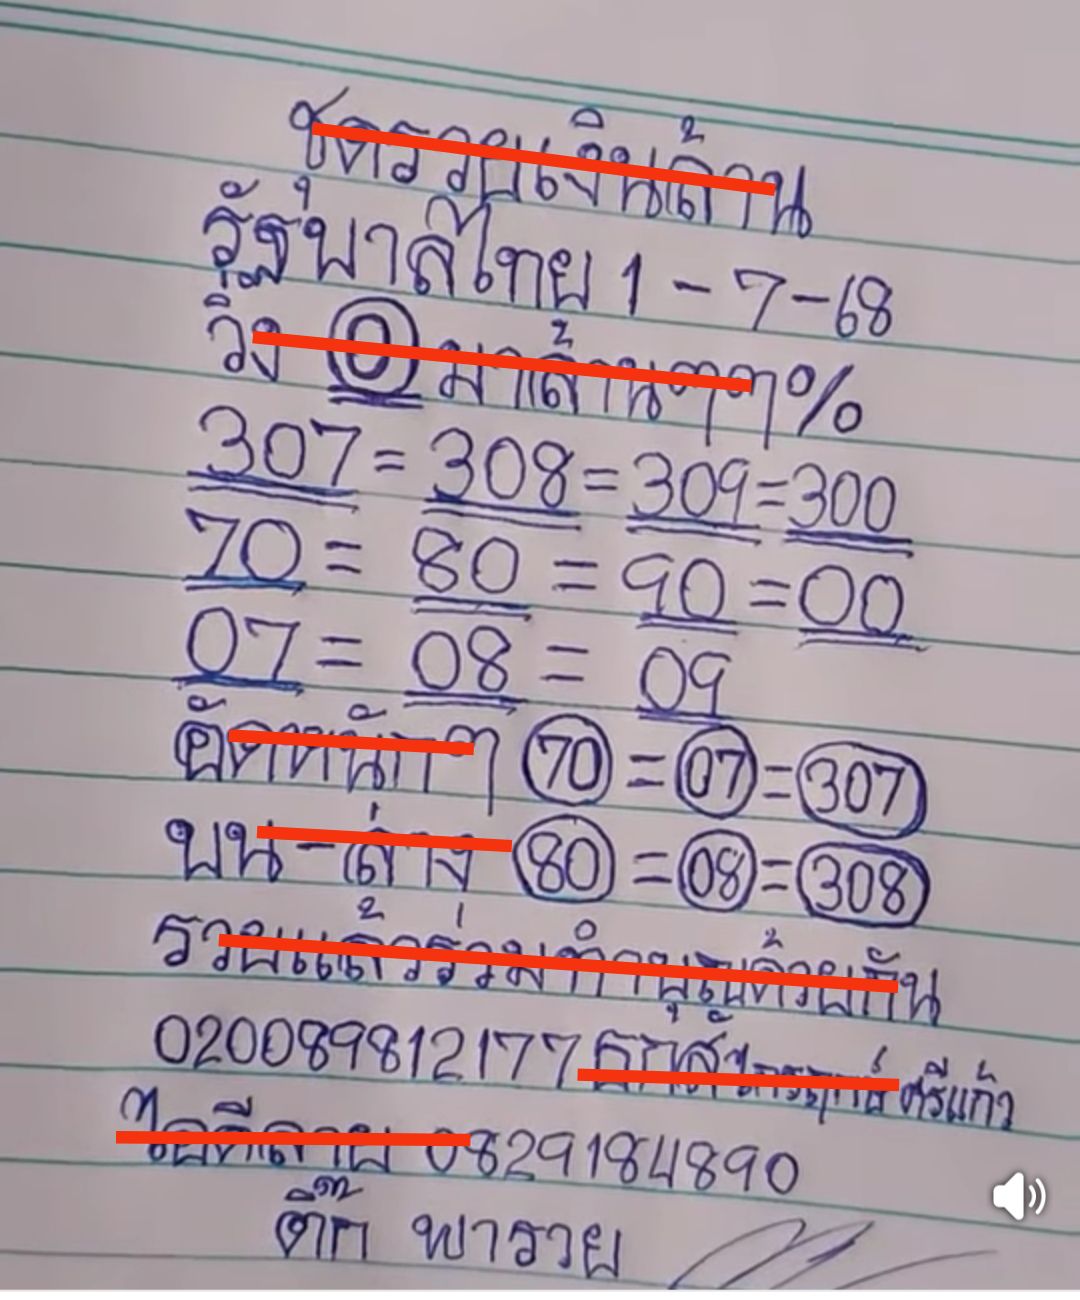 รวยเงินล้าน
รัฐบาลไทย 1-7-68
วิ่ง 0 มาล้านๆๆ%
307 = 308 = 309 = 300
70 = 80 = 90 = 00
07 = 08 = 09
อัดหนักๆ 70 = 07 = 307
บน-ล่าง 80 = 08 = 308
รวยแล้วร่วมทำบุญด้วยกัน
020089812177 ธกส ศรีแก้ว
ไอดีลาย 0829184890
ติ๊ก พารวย